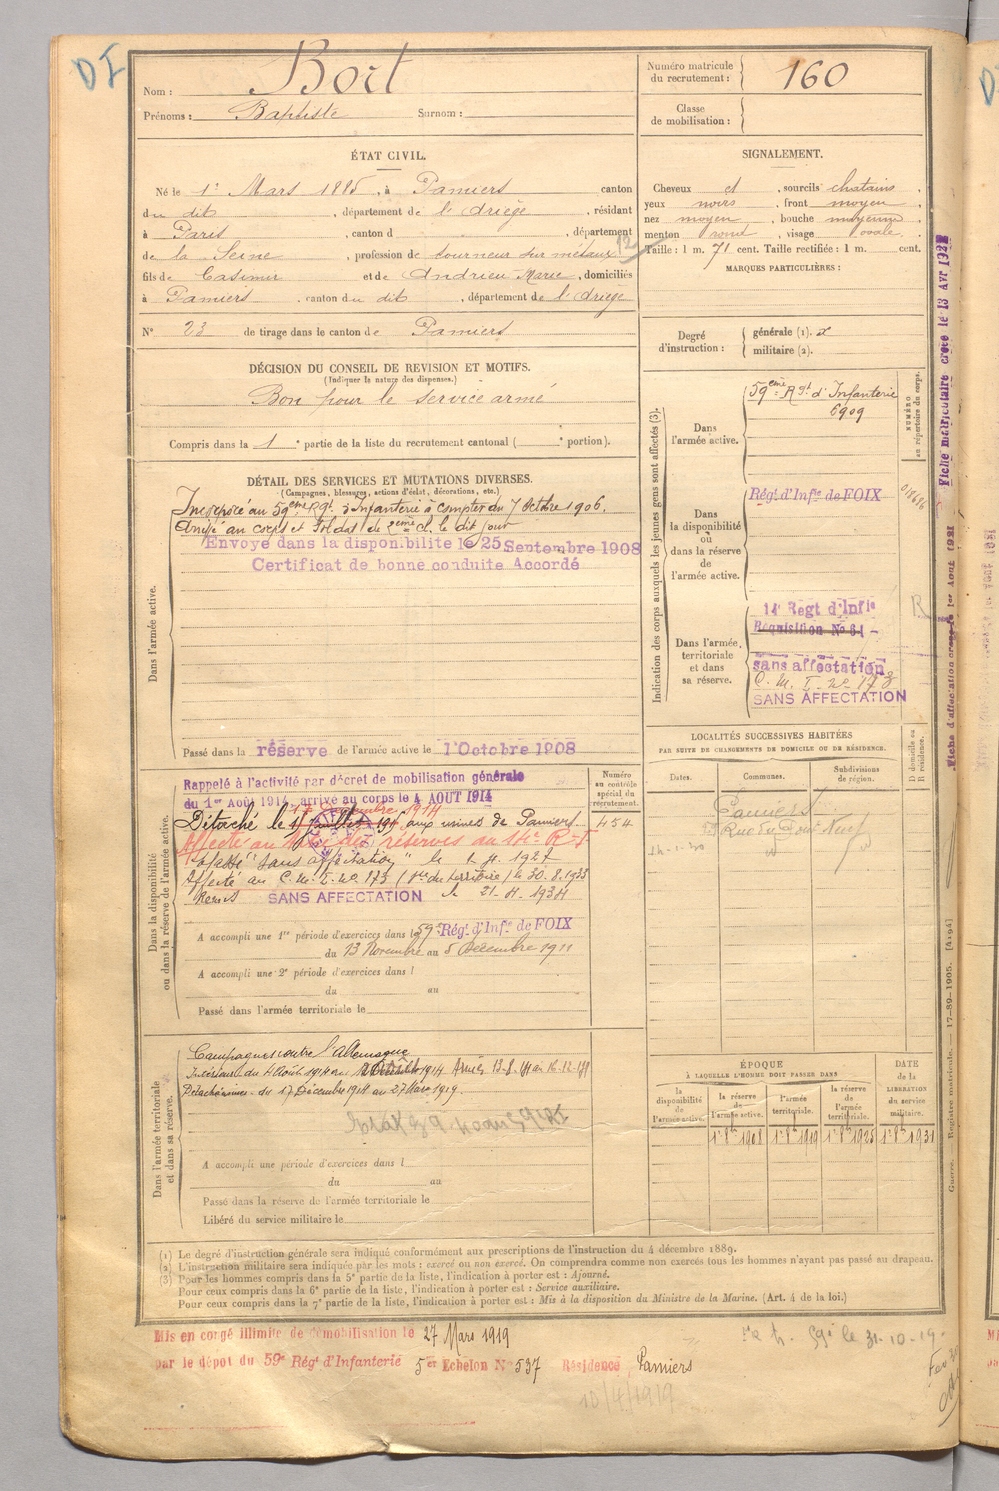 DI
Nom : Bort
Prénoms : Baptiste Surnom :
Numéro matricule du recrutement : 160
Classe de mobilisation :
ÉTAT CIVIL.
Né le 1er Mars 1885, à Pamiers canton
du dit, département de l'Ariège, résidant
à Paris, canton d, département
de la Seine, profession de tourneur sur métaux 12
fils de Casimir et de Andrieu Marie, domiciliés
à Pamiers, canton du dit, département de l'Ariège
N° 23 de tirage dans le canton de Pamiers
SIGNALEMENT.
Cheveux et, sourcils chatains,
yeux noirs, front moyen,
nez moyen, bouche moyenne
menton rond, visage ovale.
Taille : 1 m. 71 cent. Taille rectifiée : 1 m. cent.
MARQUES PARTICULIÈRES :
Degré d'instruction : générale (1). 2
militaire (2).
DÉCISION DU CONSEIL DE REVISION ET MOTIFS.
(Indiquer la nature des dispenses.)
Bon pour le service armé
Compris dans la 1e partie de la liste du recrutement cantonal ( e portion).
DÉTAIL DES SERVICES ET MUTATIONS DIVERSES.
(Campagnes, blessures, actions d'éclat, décorations, etc.)
Dans l'armée active.
Incorporé au 59ème Rgt d'Infanterie à compter du 7 Octobre 1906.
Arrivé au corps et soldat de 2ème cl. le dit jour
Envoyé dans la disponibilité le 25 Septembre 1908
Certificat de bonne conduite Accordé
Passé dans la réserve de l'armée active le 1 Octobre 1908
Indication des corps auxquels les jeunes gens sont affectés (3).
NUMÉRO au répertoire du corps.
Dans l'armée active.
59ème Rgt d'Infanterie
6909
Dans la disponibilité ou dans la réserve de l'armée active.
Régt d'Infie de FOIX
Dans l'armée territoriale et dans sa réserve.
14e Regt d'Infie
Requisition No 61
sans affectation
C. M. I. no 173
SANS AFFECTATION
R
LOCALITÉS SUCCESSIVES HABITÉES
PAR SUITE DE CHANGEMENTS DE DOMICILE OU DE RÉSIDENCE.
Dates. Communes. Subdivisions de région. D domicile ou R résidence.
Pamiers
Rue du Pont Neuf
Dans la disponibilité ou dans la réserve de l'armée active.
Numéro au contrôle spécial du recrutement.
454
Rappelé à l'activité par décret de mobilisation générale
du 1er Août 1914, arrivé au corps le 4 AOUT 1914
Détaché le aux usines de Pamiers
Affecté au des réserves au 14e R I
Classé "Sans affectation" le 1. 4. 1927
Affecté au C. M. I. no 173 le 30.8.1933
Remis SANS AFFECTATION le 21-4-1934
A accompli une 1re période d'exercices dans l 59e Régt d'Infie de FOIX
du 13 Novembre au 5 Décembre 1911
A accompli une 2e période d'exercices dans l
du au
Passé dans l'armée territoriale le
Dans l'armée territoriale et dans sa réserve.
Campagnes contre l'Allemagne
Intérieur du 4 Août 1914 au 1914 Armées 13-8-14 au 16-12-14
Détaché usines - du 17 Décembre 1914 au 27 Mars 1919.
A accompli une période d'exercices dans l
du au
Passé dans la réserve de l'armée territoriale le
Libéré du service militaire le
ÉPOQUE
À LAQUELLE L'HOMME DOIT PASSER DANS
DATE de la LIBÉRATION du service militaire.
la disponibilité de l'armée active. la réserve de l'armée active. l'armée territoriale. la réserve de l'armée territoriale.
1er 8bre 1908 1er 8bre 1919 1er 8bre 1925 1er 8bre 1931
(1) Le degré d'instruction générale sera indiqué conformément aux prescriptions de l'instruction du 4 décembre 1889.
(2) L'instruction militaire sera indiquée par les mots : exercé ou non exercé. On comprendra comme non exercés tous les hommes n'ayant pas passé au drapeau.
(3) Pour les hommes compris dans la 5e partie de la liste, l'indication à porter est : Ajourné.
Pour ceux compris dans la 6e partie de la liste, l'indication à porter est : Service auxiliaire.
Pour ceux compris dans la 7e partie de la liste, l'indication à porter est : Mis à la disposition du Ministre de la Marine. (Art. 4 de la loi.)
Mis en congé illimité de démobilisation le 27 Mars 1919
par le dépôt du 59e Régt d'Infanterie 5er Echelon No 537 Résidence Pamiers
59e le 31-10-19
10/4/1919
Fiche matriculaire créée le 13 Avr 192
Fiche d'affectation créée le 1er Août 1921
Guerre. Registre matricule. — 17-89-1905. [4194]